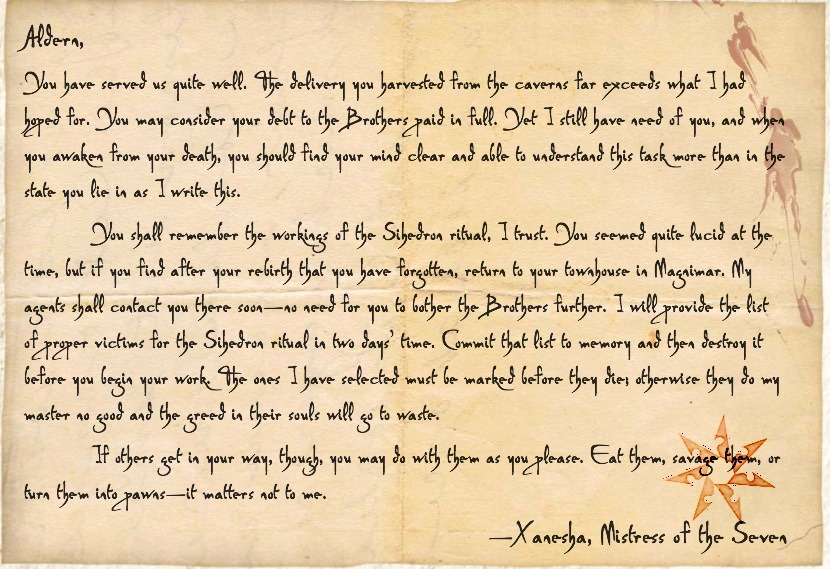 Aldern,
You have served us quite well. The delivery you harvested from the caverns far exceeds what I had
hoped for. You may consider your debt to the Brothers paid in full. Yet I still have need of you, and when
you awaken from your death, you should find your mind clear and able to understand this task more than in the
state you lie in as I write this.
You shall remember the workings of the Sihedron ritual, I trust. You seemed quite lucid at the
time, but if you find after your rebirth that you have forgotten, return to your townhouse in Magnimar. My
agents shall contact you there soon—no need for you to bother the Brothers further. I will provide the list
of proper victims for the Sihedron ritual in two days' time. Commit that list to memory and then destroy it
before you begin your work. The ones I have selected must be marked before they die; otherwise they do my
master no good and the greed in their souls will go to waste.
If others get in your way, though, you may do with them as you please. Eat them, savage them, or
turn them into pawns—it matters not to me.
—Xanesha, Mistress of the Seven